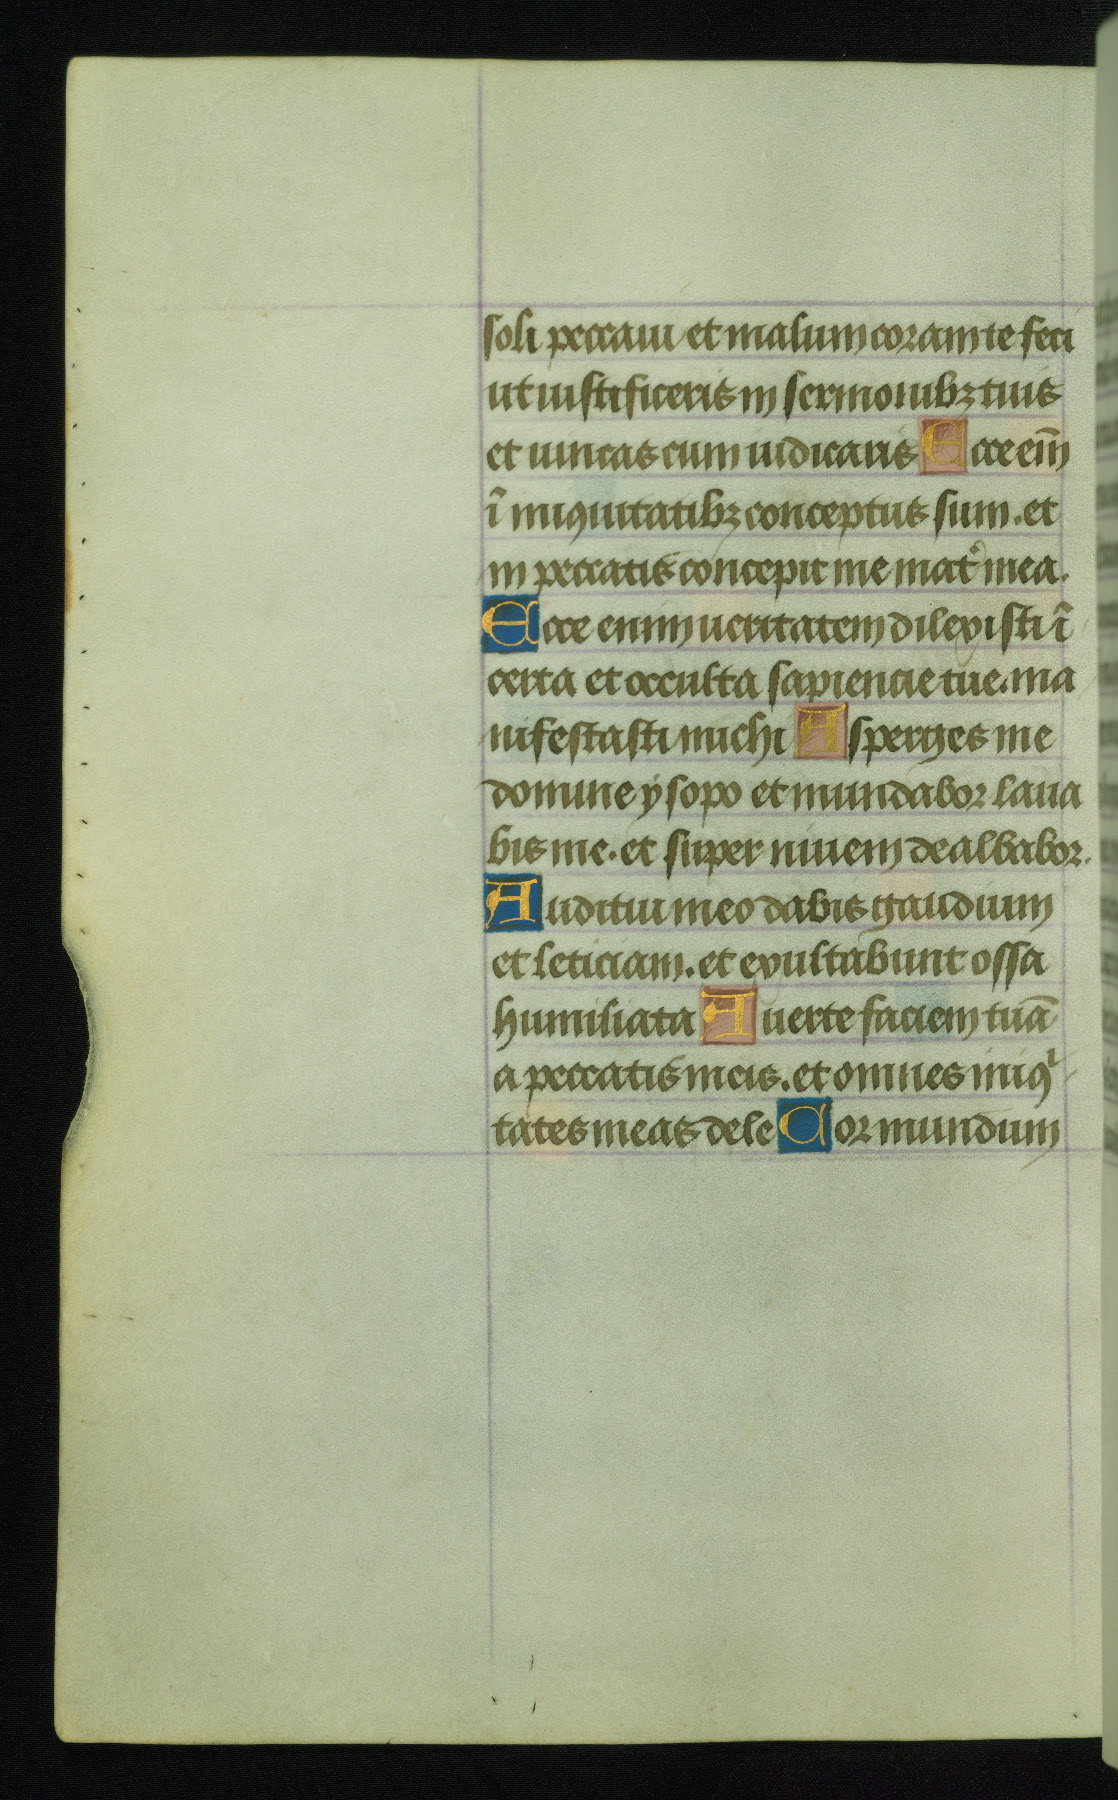 soli peccaui et malum coram te feci
ut iustificeris in sermonibꝫ tuis
et uincas cum iudicaris Ecce eni̅
i̅ iniquitatibꝫ conceptus sum. et
in peccatis concepit me mat᷑ mea.
Ecce enim ueritatem dilexisti i̅
certa et occulta sapiencie tue. ma
nifestasti michi Asperges me
domine ysopo et mundabor laua
bis me. et super niuem dealbabor.
Auditui meo dabis gaudium
et leticiam. et exultabunt ossa
humiliata Auerte faciem tua̅
a peccatis meis. et omnes iniqⁱ
tates meas dele Cor mundum